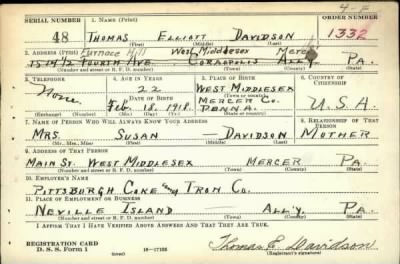 4-F
SERIAL NUMBER 1. NAME (Print) ORDER NUMBER
48 THOMAS ELLIOTT DAVIDSON 1332
(First) (Middle) (Last)
2. ADDRESS (Print) Furnace Hill West Middlesex Mercer
1514 1/2 FOURTH AVE. CORAOPOLIS ALL'Y. PA.
(Number and street or R. F. D. number) (Town) (County) (State)
3. TELEPHONE 4. AGE IN YEARS 5. PLACE OF BIRTH 6. COUNTRY OF CITIZENSHIP
None. 22 WEST MIDDLESEX
DATE OF BIRTH MERCER CO. U.S.A.
Feb. 18, 1918. PENNA.
(Exchange) (Number) (Mo.) (Day) (Yr.) (State or country)
7. NAME OF PERSON WHO WILL ALWAYS KNOW YOUR ADDRESS 8. RELATIONSHIP OF THAT PERSON
MRS. SUSAN — DAVIDSON MOTHER
(Mr., Mrs., Miss) (First) (Middle) (Last)
9. ADDRESS OF THAT PERSON
MAIN ST. WEST MIDDLESEX MERCER PA.
(Number and street or R. F. D. number) (Town) (County) (State)
10. EMPLOYER'S NAME
PITTSBURGH COKE and IRON CO.
11. PLACE OF EMPLOYMENT OR BUSINESS
NEVILLE ISLAND — ALL'Y. PA.
(Number and street or R. F. D. number) (Town) (County) (State)
I AFFIRM THAT I HAVE VERIFIED ABOVE ANSWERS AND THAT THEY ARE TRUE.
REGISTRATION CARD
D. S. S. Form 1 (over) 16—17105 Thomas E. Davidson
(Registrant's signature)